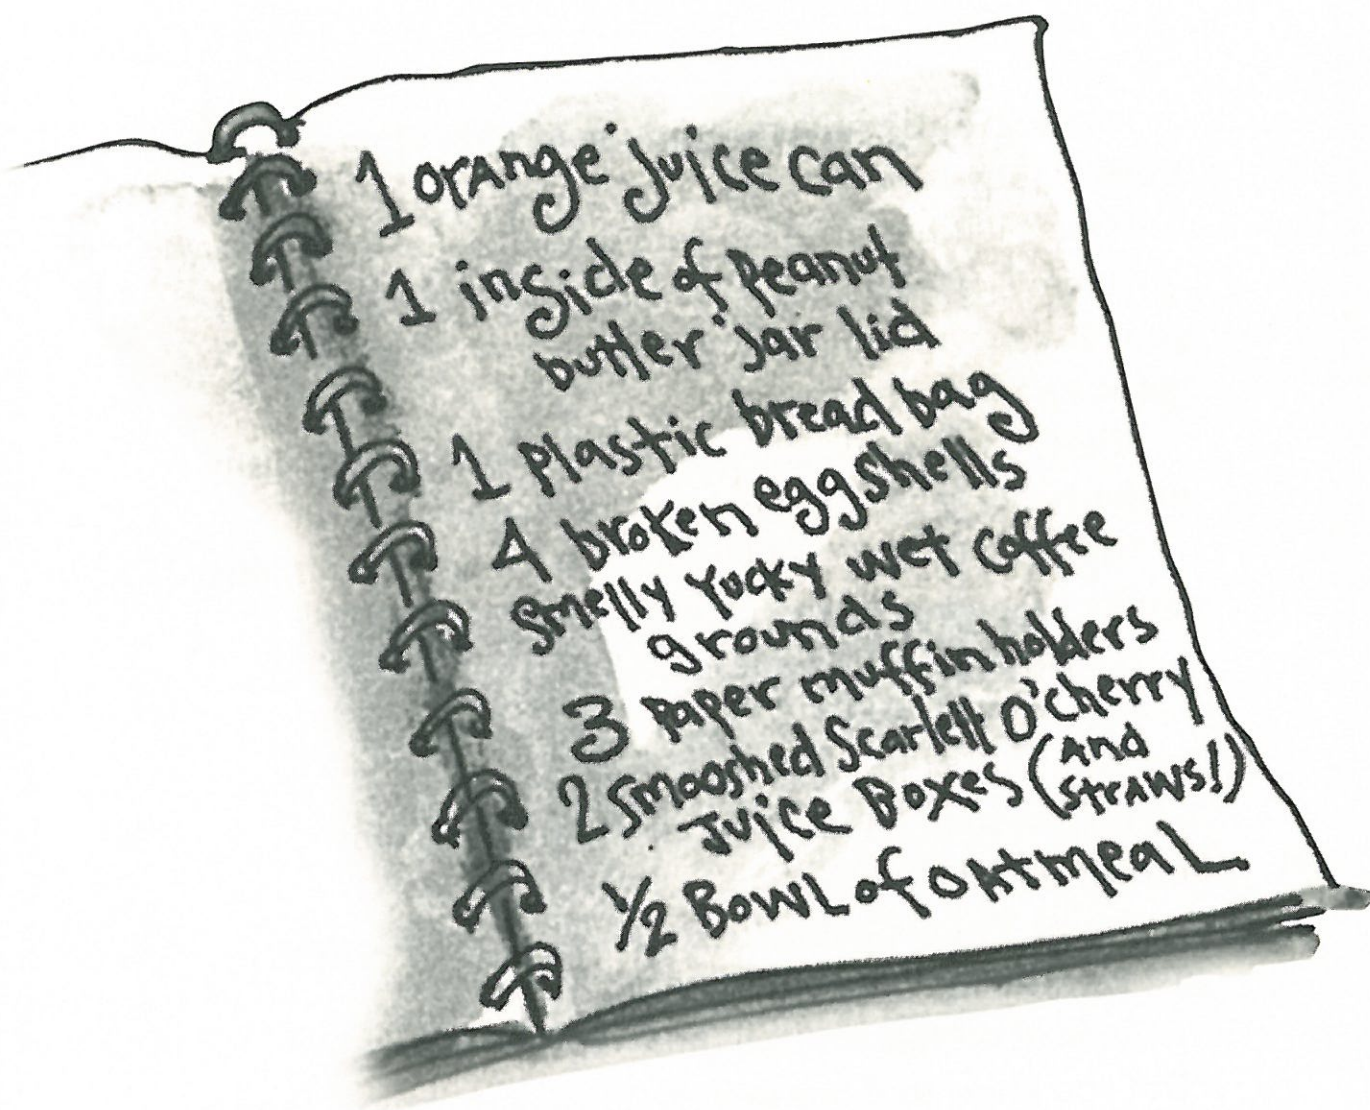 1 orange juice can
1 inside of peanut
butter jar lid
1 plastic bread bag
4 broken eggshells
smelly yucky wet coffee
grounds
3 paper muffin holders
2 smooshed Scarlett O'cherry
Juice Boxes (and
straws!)
1/2 Bowl of oatmeal